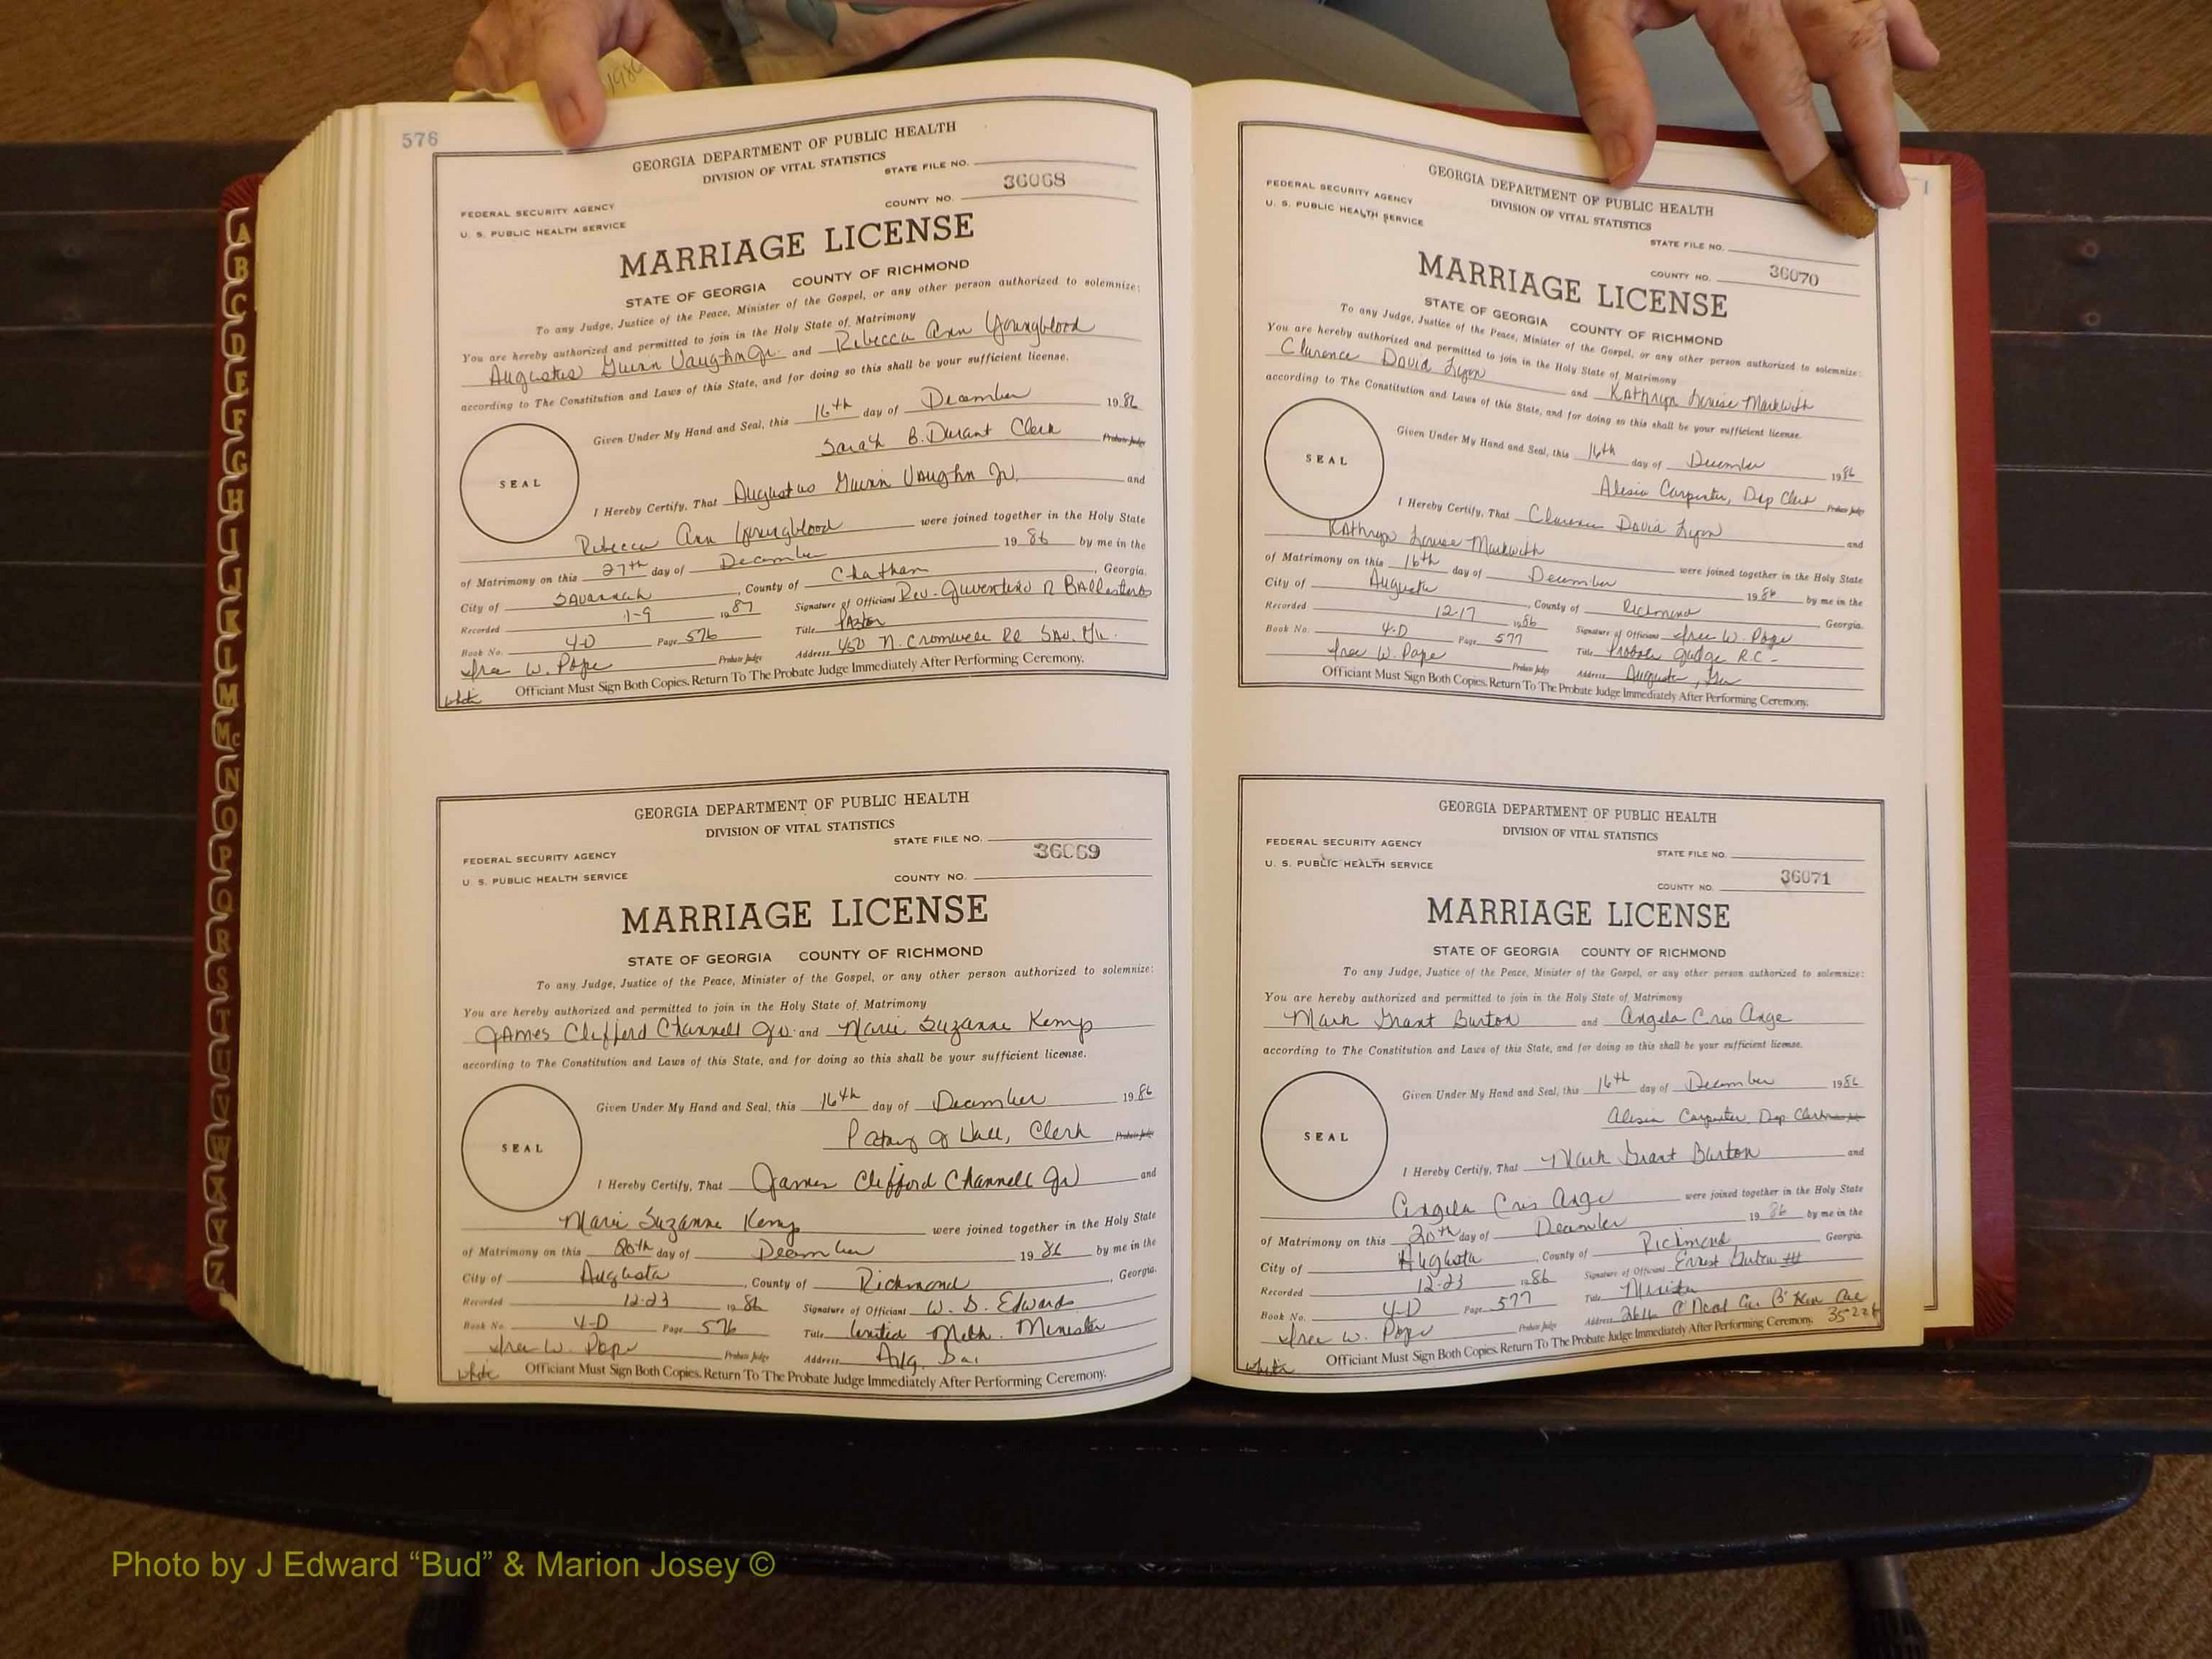 1986
576
GEORGIA DEPARTMENT OF PUBLIC HEALTH
DIVISION OF VITAL STATISTICS
STATE FILE NO.
36068
FEDERAL SECURITY AGENCY
COUNTY NO.
U. S. PUBLIC HEALTH SERVICE
MARRIAGE LICENSE
STATE OF GEORGIA COUNTY OF RICHMOND
To any Judge, Justice of the Peace, Minister of the Gospel, or any other person authorized to solemnize:
You are hereby authorized and permitted to join in the Holy State of Matrimony
Augustus Guinn Vaughn Jr. and Rebecca Ann Youngblood
according to The Constitution and Laws of this State, and for doing so this shall be your sufficient license.
Given Under My Hand and Seal, this 16th day of December 1986
Sarah B. Durant Clerk Probate Judge
SEAL
I Hereby Certify, That Augustus Guinn Vaughn Jr. and
Rebecca Ann Youngblood were joined together in the Holy State
of Matrimony on this 27th day of December 1986 by me in the
City of Savannah, County of Chatham, Georgia.
Recorded 1-9 1987 Signature of Officiant Rev. Juventino R Ballesteros
Book No. 4-D Page 576 Title Pastor
W. Pope Probate Judge Address 450 N. Cromwell Rd Sav. Ga.
Officiant Must Sign Both Copies. Return To The Probate Judge Immediately After Performing Ceremony.
white
GEORGIA DEPARTMENT OF PUBLIC HEALTH
DIVISION OF VITAL STATISTICS
STATE FILE NO.
36069
FEDERAL SECURITY AGENCY
U. S. PUBLIC HEALTH SERVICE
COUNTY NO.
MARRIAGE LICENSE
STATE OF GEORGIA COUNTY OF RICHMOND
To any Judge, Justice of the Peace, Minister of the Gospel, or any other person authorized to solemnize:
You are hereby authorized and permitted to join in the Holy State of Matrimony
James Clifford Channell Jr and Marie Suzanne Kemp
according to The Constitution and Laws of this State, and for doing so this shall be your sufficient license.
Given Under My Hand and Seal, this 16th day of December 1986
Patsy J Wall, Clerk Probate Judge
SEAL
I Hereby Certify, That James Clifford Channell Jr and
Marie Suzanne Kemp were joined together in the Holy State
of Matrimony on this 20th day of December 1986 by me in the
City of Augusta, County of Richmond, Georgia.
Recorded 12-23 1986 Signature of Officiant W. S. Edwards
Book No. 4-D Page 576 Title United Meth. Minister
W. Pope Probate Judge Address Aug. Ga.
white Officiant Must Sign Both Copies. Return To The Probate Judge Immediately After Performing Ceremony.
GEORGIA DEPARTMENT OF PUBLIC HEALTH
DIVISION OF VITAL STATISTICS
FEDERAL SECURITY AGENCY
U. S. PUBLIC HEALTH SERVICE
STATE FILE NO.
COUNTY NO. 36070
MARRIAGE LICENSE
STATE OF GEORGIA COUNTY OF RICHMOND
To any Judge, Justice of the Peace, Minister of the Gospel, or any other person authorized to solemnize:
You are hereby authorized and permitted to join in the Holy State of Matrimony
Clarence David Lyon and Kathryn Louise Markwith
according to The Constitution and Laws of this State, and for doing so this shall be your sufficient license.
Given Under My Hand and Seal, this 16th day of December 1986
Alesia Carpenter, Dep Clerk Probate Judge
SEAL
I Hereby Certify, That Clarence David Lyon and
Kathryn Louise Markwith were joined together in the Holy State
of Matrimony on this 16th day of December 1986 by me in the
City of Augusta, County of Richmond Georgia.
Recorded 12-17 1986 Signature of Officiant W. Pope
Book No. 4-D Page 577 Title Probate Judge R.C.
W. Pope Probate Judge Address Augusta, Ga
Officiant Must Sign Both Copies. Return To The Probate Judge Immediately After Performing Ceremony.
GEORGIA DEPARTMENT OF PUBLIC HEALTH
DIVISION OF VITAL STATISTICS
FEDERAL SECURITY AGENCY
STATE FILE NO.
U. S. PUBLIC HEALTH SERVICE
COUNTY NO. 36071
MARRIAGE LICENSE
STATE OF GEORGIA COUNTY OF RICHMOND
To any Judge, Justice of the Peace, Minister of the Gospel, or any other person authorized to solemnize:
You are hereby authorized and permitted to join in the Holy State of Matrimony
Mark Grant Burton and Angela Cris Ange
according to The Constitution and Laws of this State, and for doing so this shall be your sufficient license.
Given Under My Hand and Seal, this 16th day of December 1986
Alesia Carpenter, Dep Clerk
SEAL
I Hereby Certify, That Mark Grant Burton and
Angela Cris Ange were joined together in the Holy State
of Matrimony on this 20th day of December 1986 by me in the
City of Augusta, County of Richmond Georgia.
Recorded 12-23 1986 Signature of Officiant Ernest III
Book No. 4-D Page 577 Title Minister
W. Pope Probate Judge Address 2616 O'Neal Ave 35226
white Officiant Must Sign Both Copies. Return To The Probate Judge Immediately After Performing Ceremony.
A
B
C
D
E
F
G
H
I
J
K
L
M
Mc
N
O
P
Q
R
S
T
U
V
W
X
Y
Z
Photo by J Edward “Bud” & Marion Josey ©